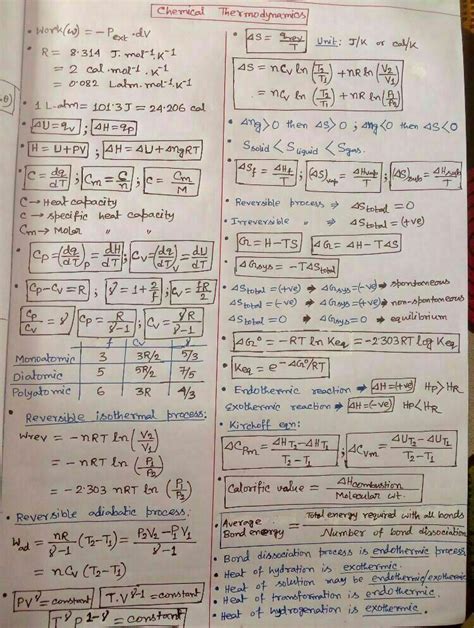 Chemical Thermodynamics
• Work(w) = -Pext.dV
• R = 8.314 J.mol⁻¹.K⁻¹
= 2 cal.mol⁻¹.K⁻¹
= 0.082 L.atm.mol⁻¹.K⁻¹
• 1 L.atm = 101.3 J = 24.206 cal
• ΔU = qv ; ΔH = qp
• H = U + PV ; ΔH = ΔU + ΔngRT
• C = dq/dT ; Cm = C/n ; c = Cm/M
C → Heat capacity
c → specific heat capacity
Cm → Molar " "
• Cp = (dq/dT)p = dH/dT ; Cv = (dq/dT)v = dU/dT
• Cp - Cv = R ; γ = 1 + 2/f ; Cv = fR/2
Cp/Cv = γ ; Cp = γR/γ-1 ; Cv = R/γ-1
f Cv γ
Monoatomic 3 3R/2 5/3
Diatomic 5 5R/2 7/5
Polyatomic 6 3R 4/3
• Reversible isothermal process:
Wrev = -nRT ln (V2/V1)
= -nRT ln (P1/P2)
= -2.303 nRT ln (P1/P2)
• Reversible adiabatic process:
Wad = nR/γ-1 (T2-T1) = P2V2-P1V1/γ-1
= nCv (T2-T1)
• PVγ = constant T.Vγ-1 = constant
TγP1-γ = constant
• ΔS = qrev/T Unit: J/K or cal/K
ΔS = nCv ln (T2/T1) + nR ln (V2/V1)
= nCv ln (T2/T1) + nR ln (P1/P2)
• Δng>0 then ΔS>0 ; Δng<0 then ΔS<0
• Ssolid < Sliquid < Sgas.
• ΔSf = ΔHf/T ; (ΔS)vap = ΔHvap/T ; (ΔS)sub = ΔHsub/T
• Reversible process ⇒ ΔStotal = 0
• Irreversible " ⇒ ΔStotal = (+ve)
• G = H-TS ΔG = ΔH - TΔS
• ΔGsys = -TΔStotal
• ΔStotal = (+ve) ⇒ ΔGsys = (-ve) ⇒ spontaneous
ΔStotal = (-ve) ⇒ ΔGsys = (+ve) ⇒ non-spontaneous
ΔStotal = 0 ⇒ ΔGsys = 0 ⇒ equilibrium
• ΔG° = -RT ln Keq = -2.303 RT log Keq
• Keq = e-ΔG°/RT
• Endothermic reaction ⇒ ΔH = (+ve) HP > HR
Exothermic reaction ⇒ ΔH = (-ve) HP < HR
• Kirchoff eqn:
ΔCPm = ΔHT2 - ΔHT1/T2-T1 ; ΔCvm = ΔUT2 - ΔUT1/T2-T1
• Calorific value = ΔHcombustion/Molecular wt.
• Average Bond energy = Total energy required with all bonds/Number of bond dissociation
• Bond dissociation process is endothermic process
• Heat of hydration is exothermic.
• Heat of solution may be endothermic/exothermic
• Heat of transformation is endothermic.
• Heat of hydrogenation is exothermic.